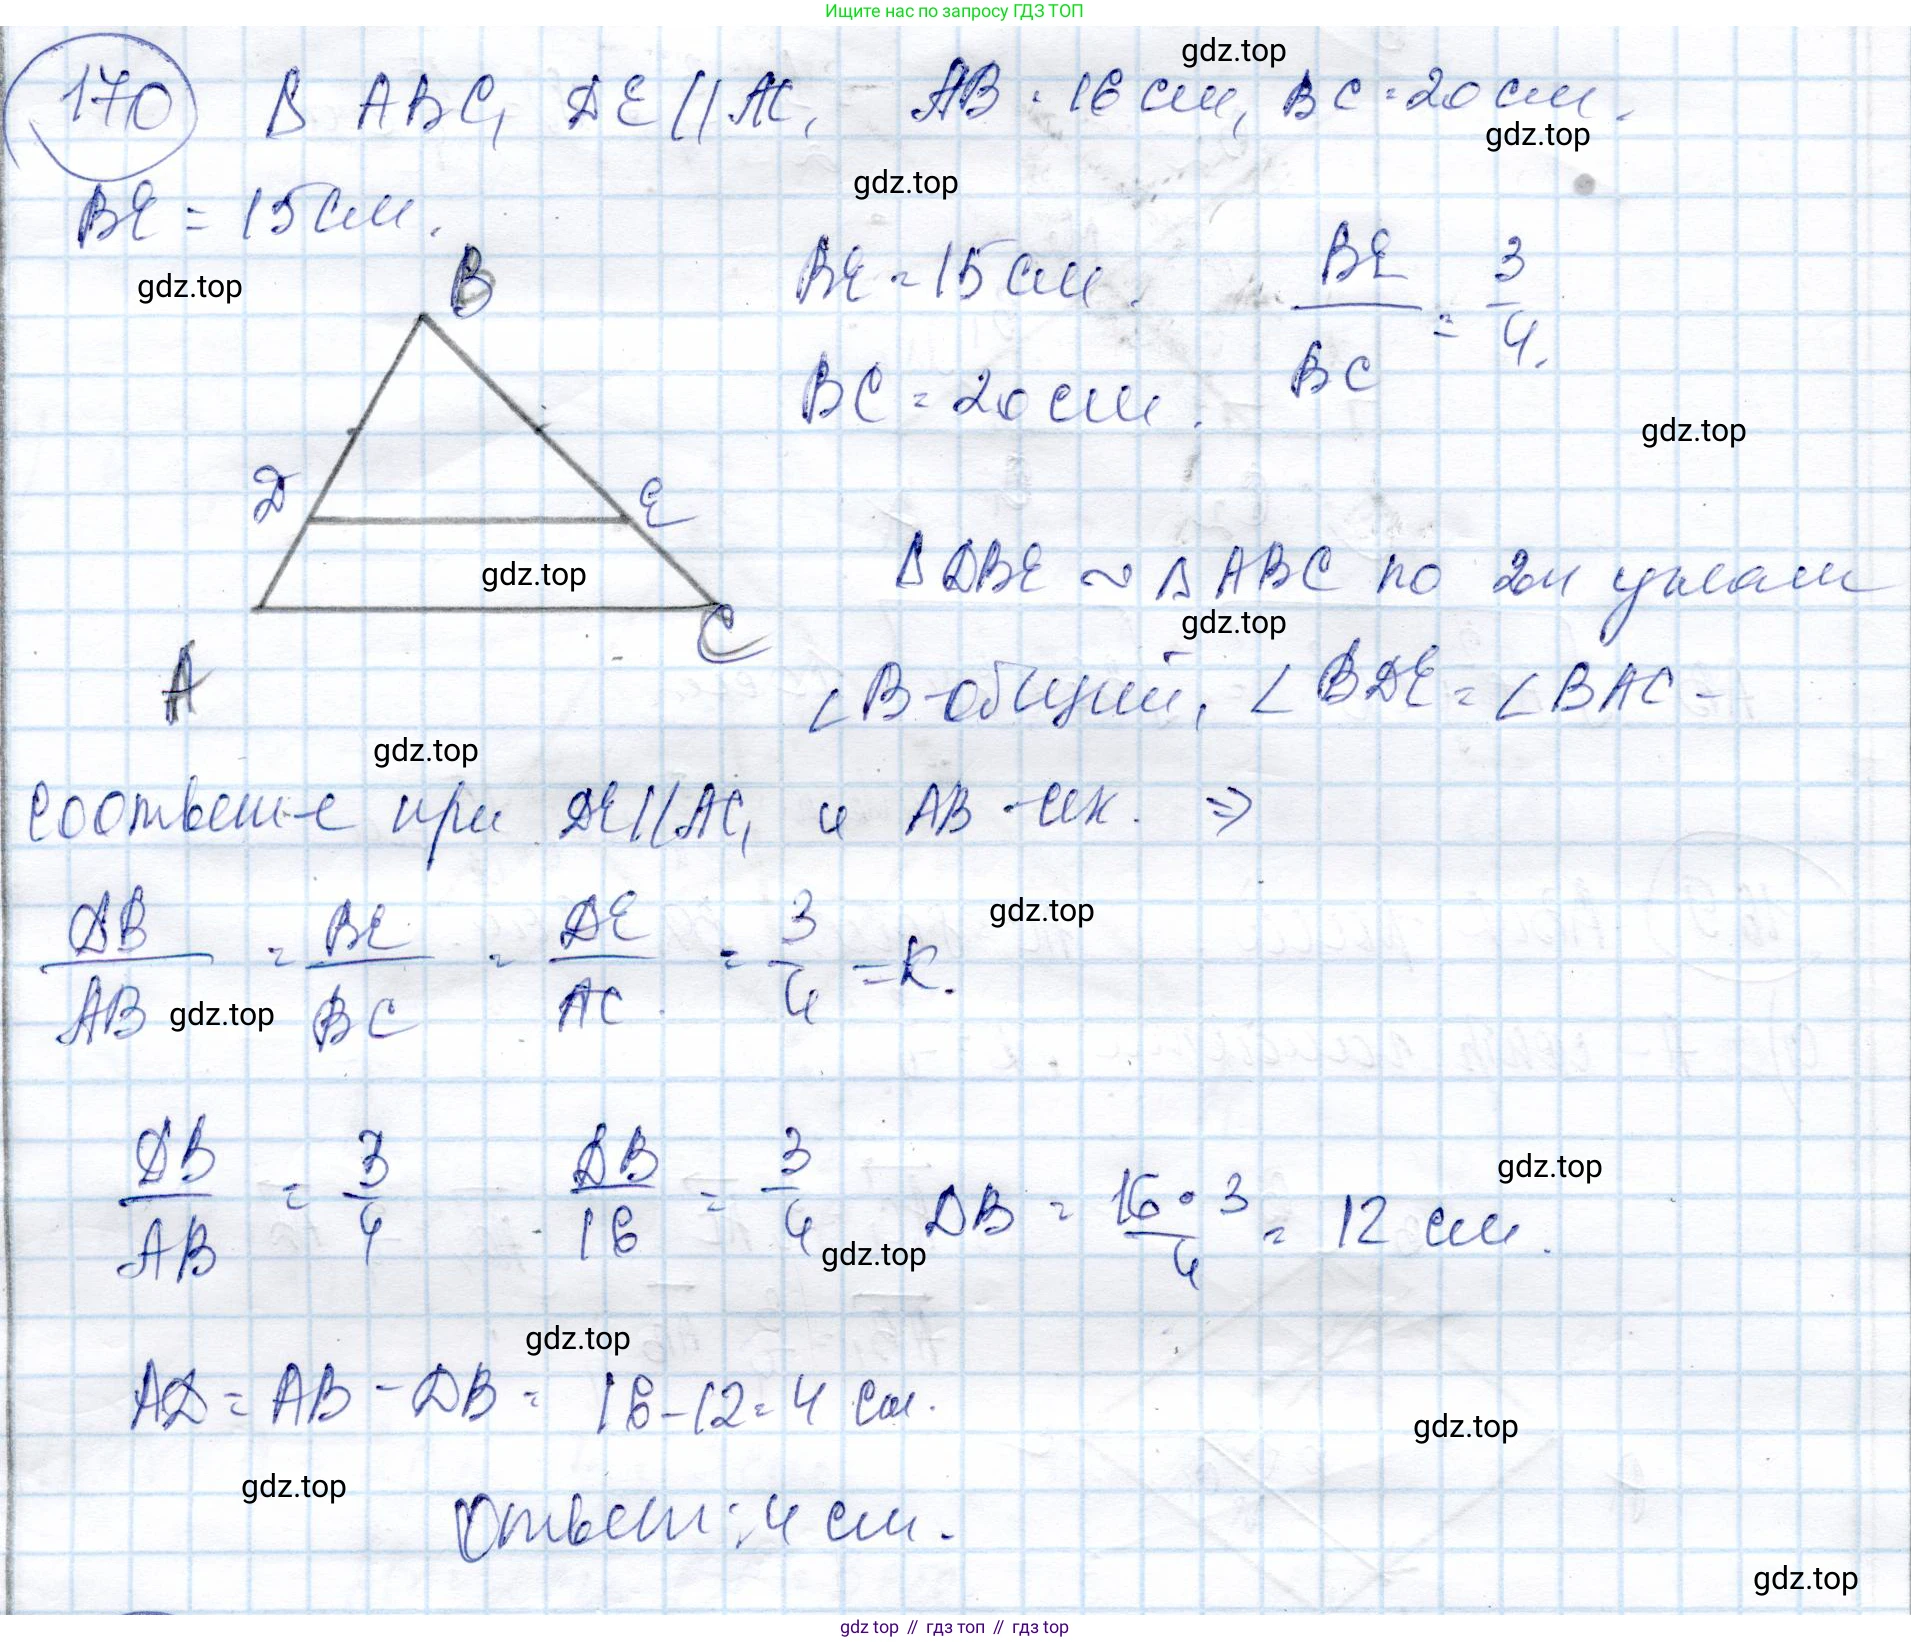 Ищите нас по запросу ГДЗ ТОП
gdz.top
170 Δ ABC, DE || AC, AB = 16 см, BC = 20 см.
gdz.top
gdz.top
BE = 15 см.
gdz.top
B
BE = 15 см. BE/BC = 3/4.
BC = 20 см.
gdz.top
D E
gdz.top
Δ DBE ~ Δ ABC по 2м углам
gdz.top
A C
∠B - общий, ∠BDE = ∠BAC -
gdz.top
соответ-е при DE || AC, и AB - сек. ⇒
gdz.top
DB/AB = BE/BC = DE/AC = 3/4 = k.
gdz.top
DB/AB = 3/4 DB/16 = 3/4 DB = 16 · 3/4 = 12 см.
gdz.top
gdz.top
gdz.top
AD = AB - DB = 16 - 12 = 4 см.
gdz.top
gdz.top
Ответ: 4 см.
gdz.top
gdz top // гдз топ // гдз top